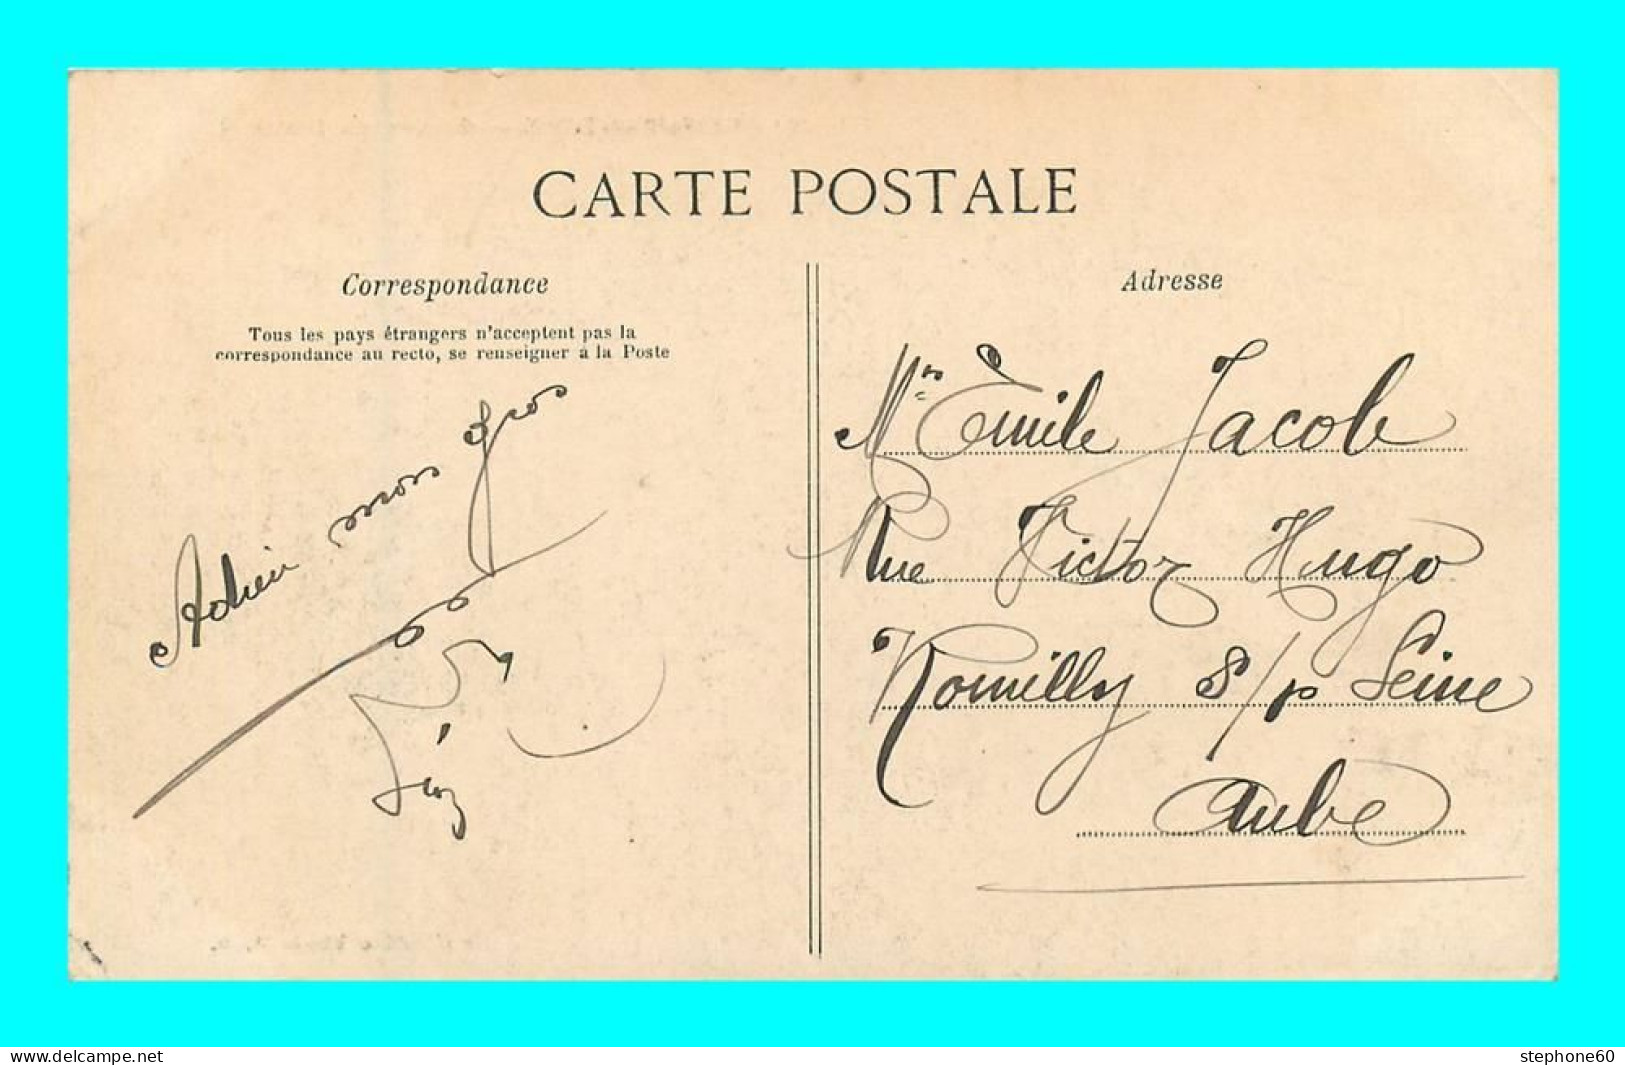 CARTE POSTALE
Correspondance
Tous les pays étrangers n'acceptent pas la
correspondance au recto, se renseigner à la Poste
Adieu mon gros
Adresse
Mr Émile Jacob
Rue Victor Hugo
Romilly S/ Seine
Aube
www.delcampe.net
stephone60